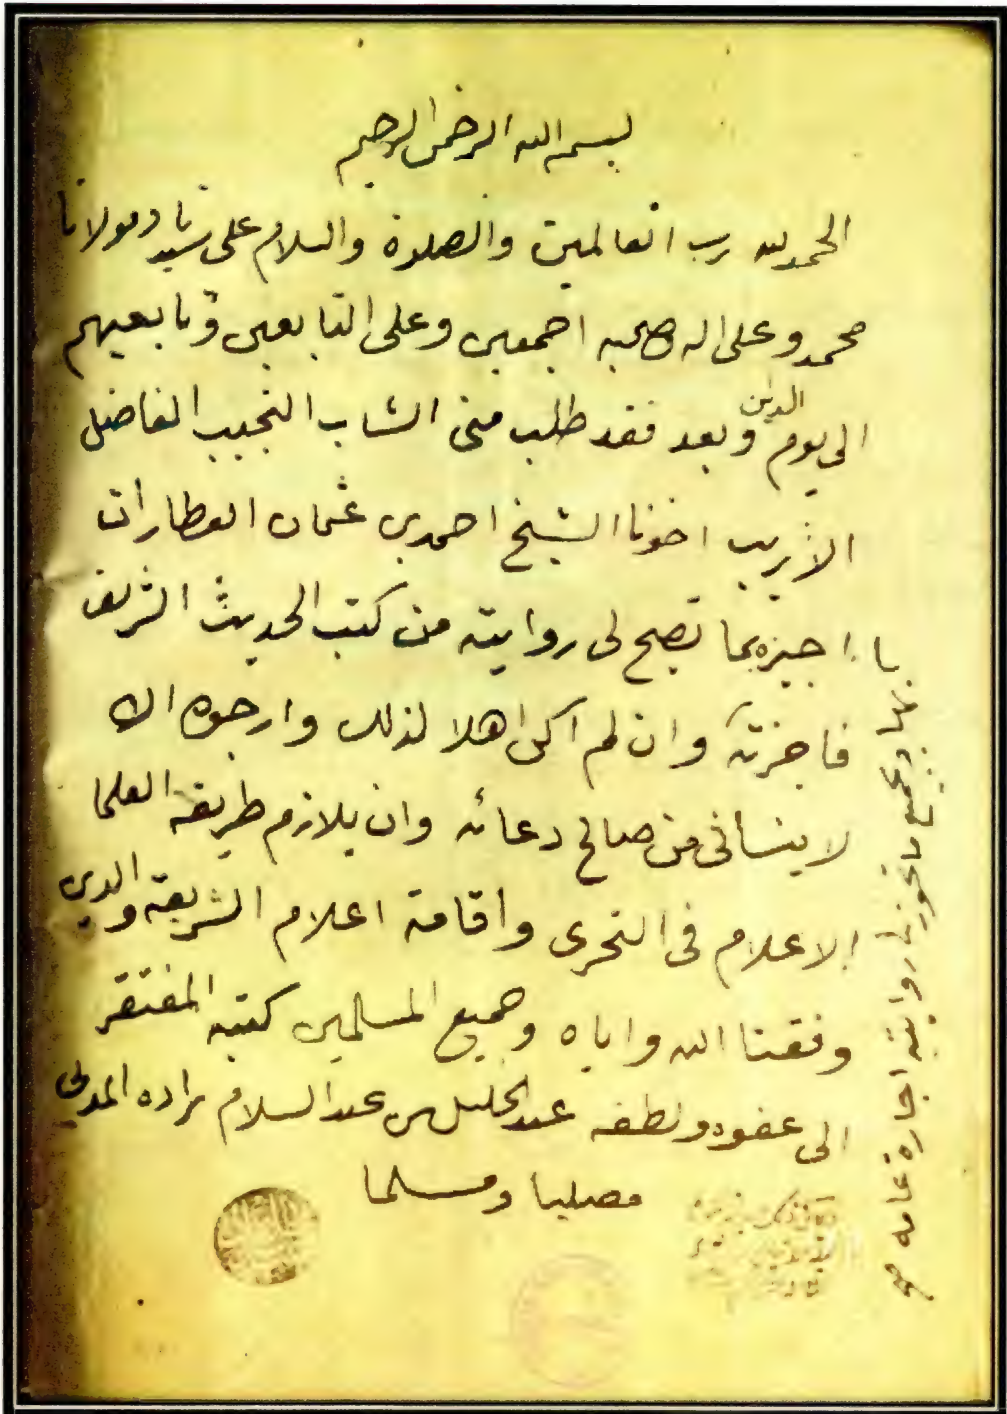 بسم الله الرحمن الرحيم
الحمد لله رب العالمين والصلاة والسلام على سيدنا ومولانا
محمد وعلى اله وصحبه اجمعين وعلى التابعين وتابعيهم
الى يوم الدين وبعد فقد طلب منى الشاب النجيب الفاضل
الأريب اخونا الشيخ احمد بن عثمان العطار ان
اجيزه بما تصح لى روايته من كتب الحديث الشريف
فاجزته وان لم اكن اهلا لذلك وارجوه ان
لا ينسانى من صالح دعائه وان يلازم طريقة العلما
الاعلام فى التحرى واقامة اعلام الشريعة والدين
وفقنا الله واياه وجميع المسلمين كتبه المفتقر
الى عفوه ولطفه عبد الجليل بن عبد السلام براده المدنى
مصليا ومسلما
بها وبجميع ما تجوز لى روايته اجازة عامه صح